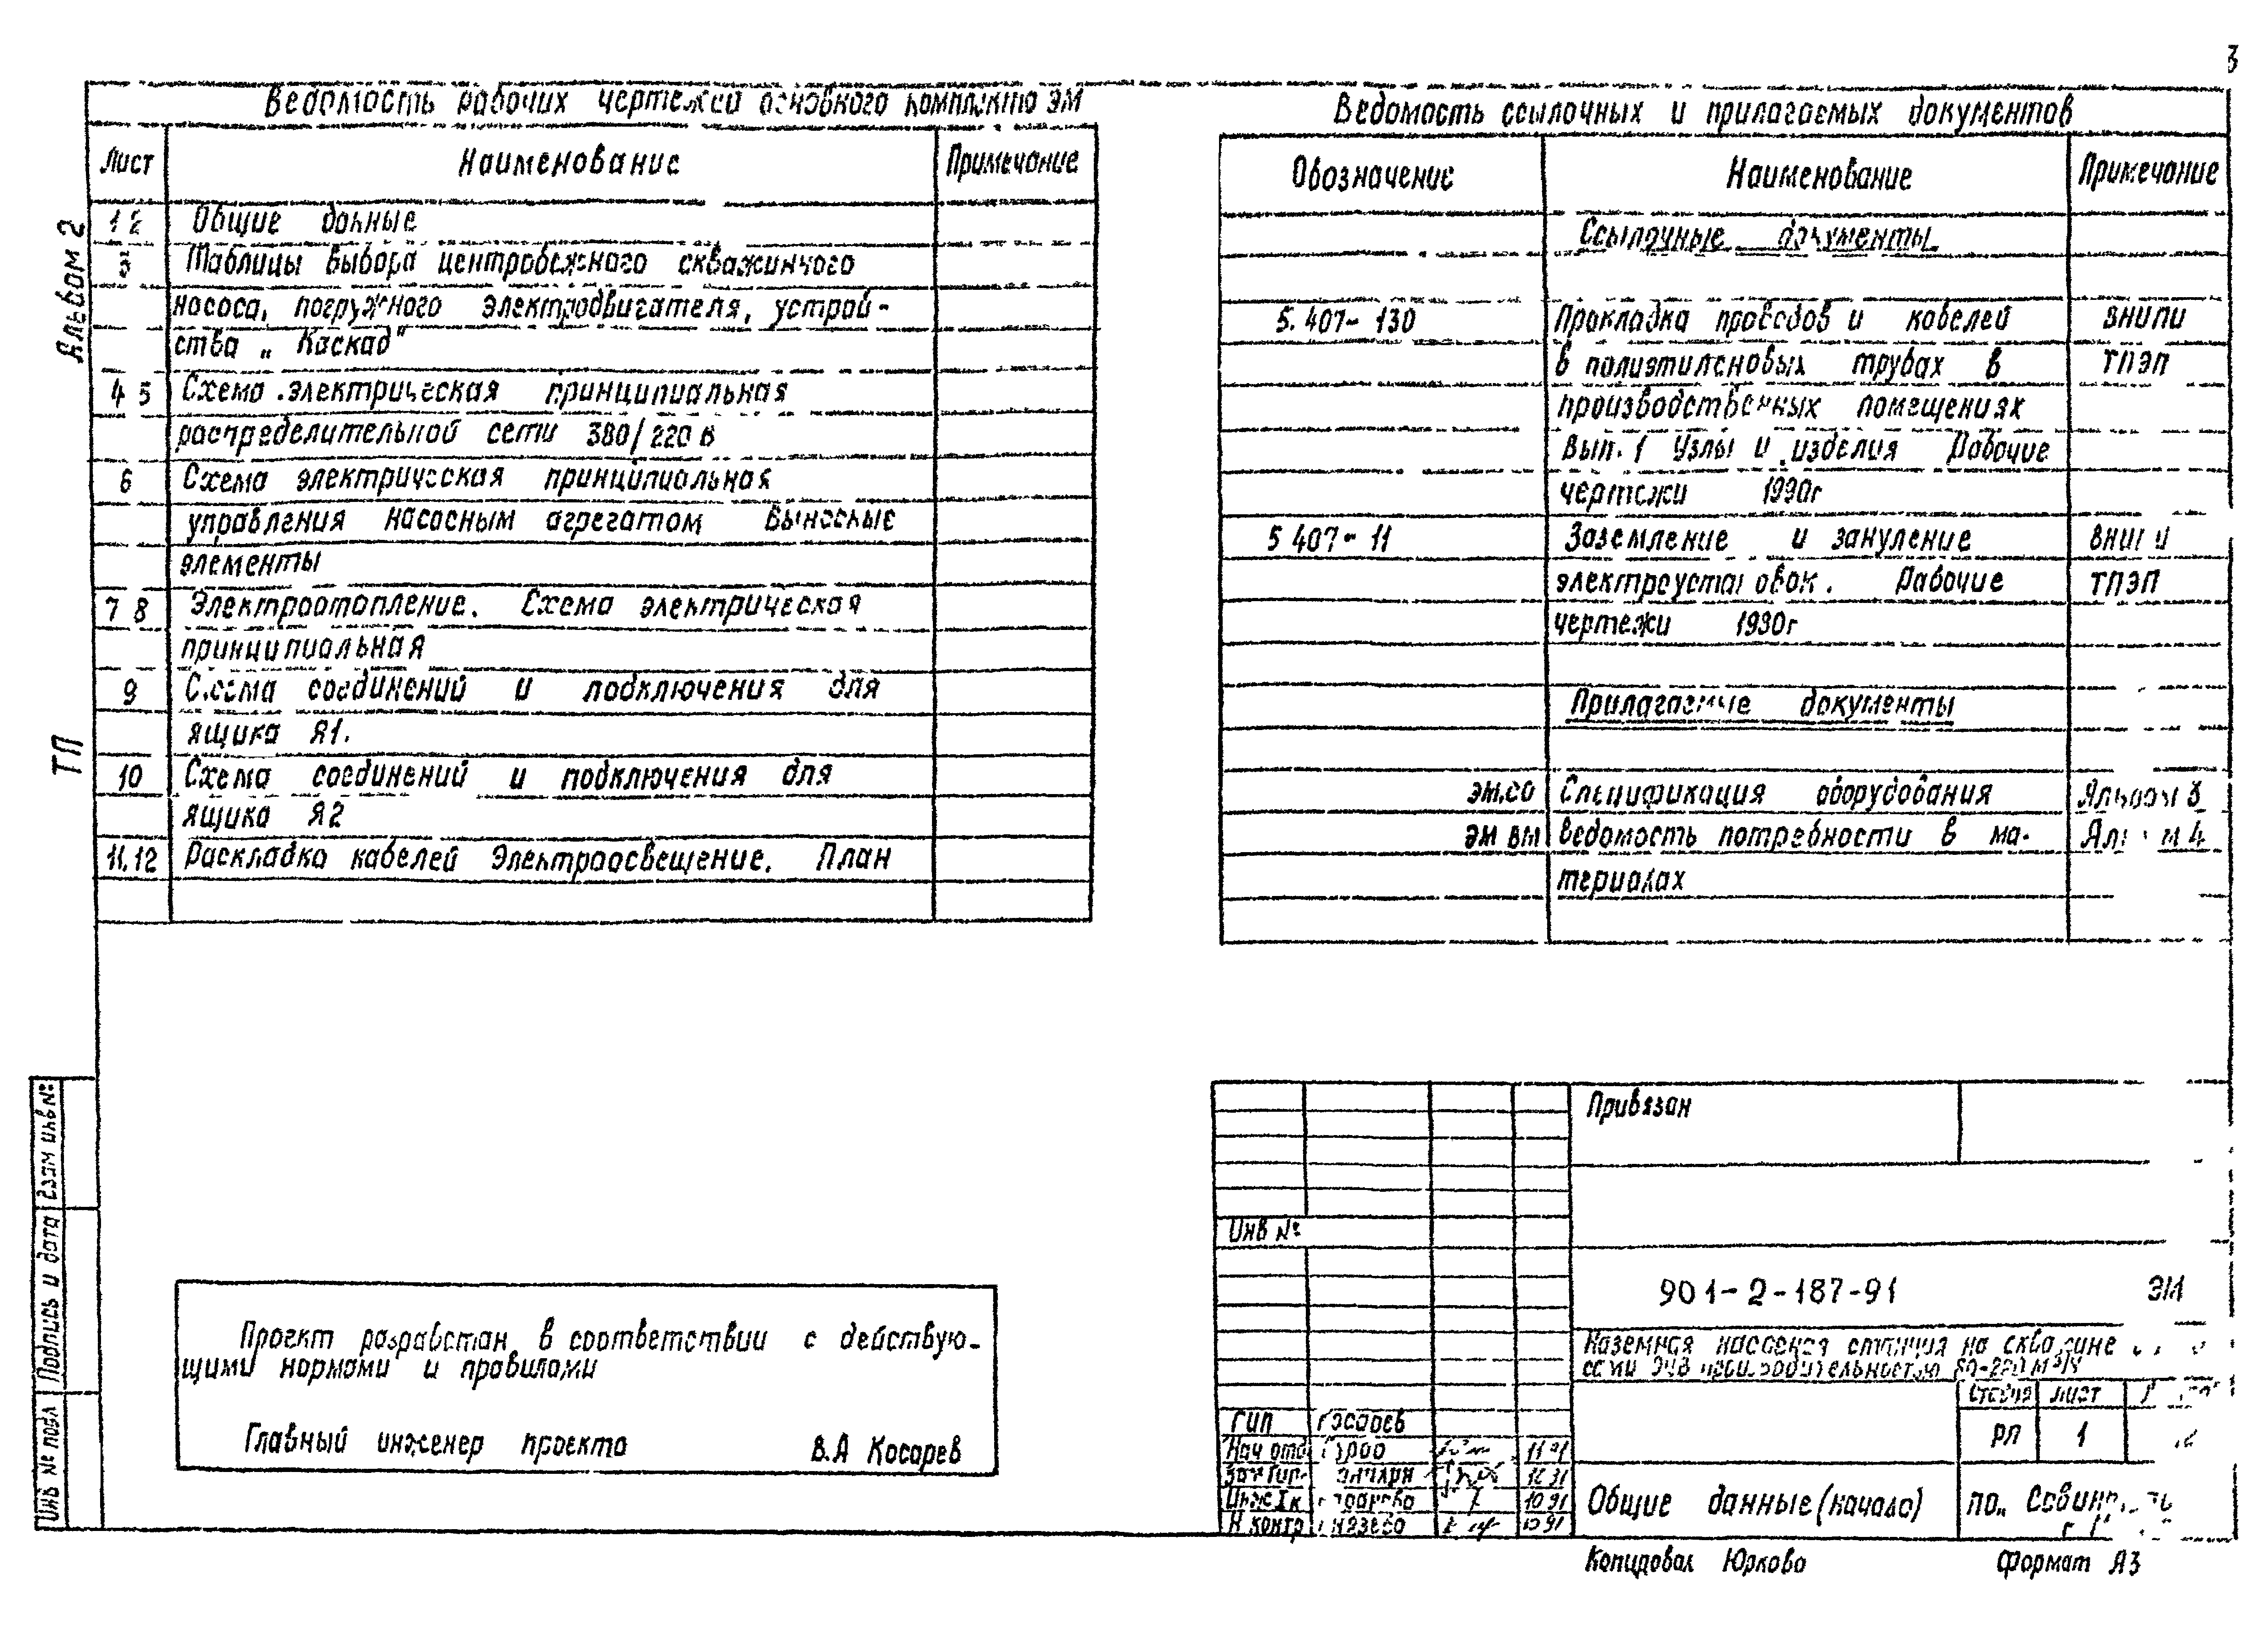 3
Ведомость рабочих чертежей основного комплекта ЭМ
Лист Наименование Примечание
1 2 Общие данные
3 Таблицы выбора центробежного скважинного
насоса, погружного электродвигателя, устрой-
ства „Каскад"
4 5 Схема электрическая принципиальная
распределительной сети 380/220 в
6 Схема электрическая принципиальная
управления насосным агрегатом Выносные
элементы
7 8 Электроотопление. Схема электрическая
принципиальная
9 Схема соединений и подключения для
ящика Я1.
10 Схема соединений и подключения для
ящика Я2
11.12 Раскладка кабелей Электроосвещение. План
Ведомость ссылочных и прилагаемых документов
Обозначение Наименование Примечание
Ссылочные документы
5.407-130 Прокладка проводов и кабелей ВНИПИ
в полиэтиленовых трубах в ТПЭП
производственных помещениях
Вып. 1 Узлы и изделия Рабочие
чертежи 1990г
5 407-11 Заземление и зануление ВНИПИ
электроустановок. Рабочие ТПЭП
чертежи 1990г
Прилагаемые документы
ЭМ.СО Спецификация оборудования Альбом 3
ЭМ ВМ Ведомость потребности в ма- Альбом 4
териалах
Альбом 2
ТП
Взам инв №
Подпись и дата
Инв № подл
Проект разработан в соответствии с действую-
щими нормами и правилами
Главный инженер проекта В.А Косарев
Привязан
Инв №
901-2-187-91 ЭМ
Наземная насосная станция на скважине
производительностью
Стадия Лист
РП 1
ГИП Косарев
Нач отд
10 91
Н контр Князева 10 91
Общие данные (начало)
Копировал Юркова Формат А3